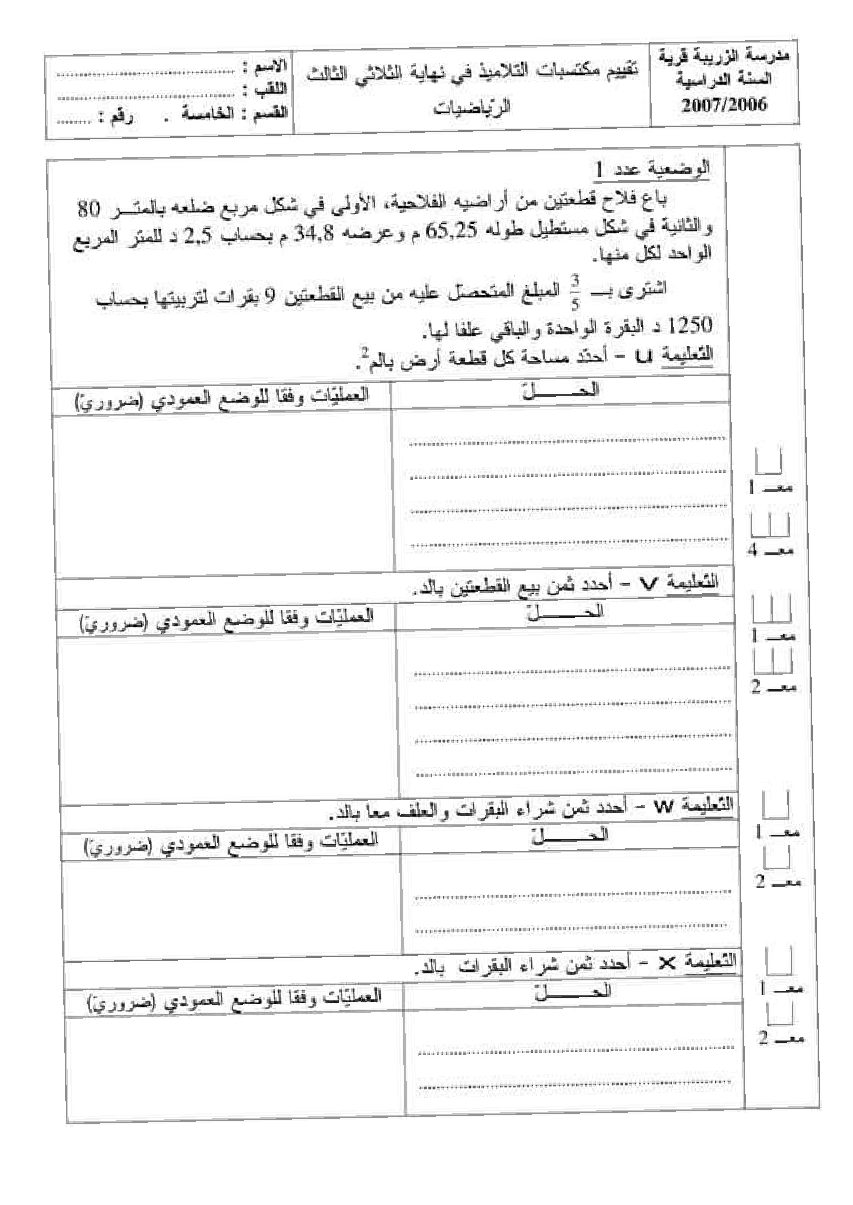 مدرسة الزريبة قرية
السنة الدراسية
2007/2006
تقييم مكتسبات التلاميذ في نهاية الثلاثي الثالث
الرياضيات
الاسم : ........................................
اللقب : ........................................
القسم : الخامسة . رقم : ........
الوضعية عدد 1
باع فلاح قطعتين من أراضيه الفلاحية، الأولى في شكل مربع ضلعه بالمتـــر 80
والثانية في شكل مستطيل طوله 65,25 م وعرضه 34,8 م بحساب 2,5 د للمتر المربع
الواحد لكل منها.
اشترى بـــ 3/5 المبلغ المتحصّل عليه من بيع القطعتين 9 بقرات لتربيتها بحساب
1250 د البقرة الواحدة والباقي علفا لها.
التعليمة u – أحدّد مساحة كل قطعة أرض بالم².
الحـــــــلّ
العمليّات وفقا للوضع العمودي (ضروريّ)
معـــ 1
معـــ 4
التعليمة v – أحدد ثمن بيع القطعتين بالد.
الحـــــــلّ
العمليّات وفقا للوضع العمودي (ضروريّ)
معـــ 1
معـــ 2
التعليمة w – أحدد ثمن شراء البقرات والعلف معا بالد.
الحـــــــلّ
العمليّات وفقا للوضع العمودي (ضروريّ)
معـــ 1
معـــ 2
التعليمة x – أحدد ثمن شراء البقرات بالد.
الحـــــــلّ
العمليّات وفقا للوضع العمودي (ضروريّ)
معـــ 1
معـــ 2